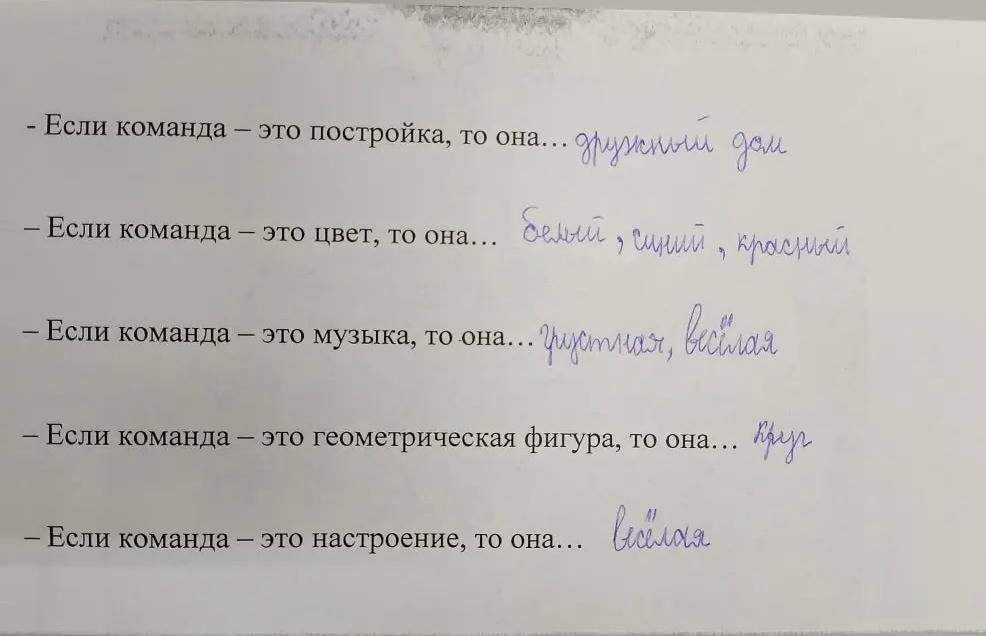 - Если команда – это постройка, то она… дружный дом
– Если команда – это цвет, то она… белый, синий, красный
– Если команда – это музыка, то она… грустная, весёлая
– Если команда – это геометрическая фигура, то она… круг
– Если команда – это настроение, то она… весёлая